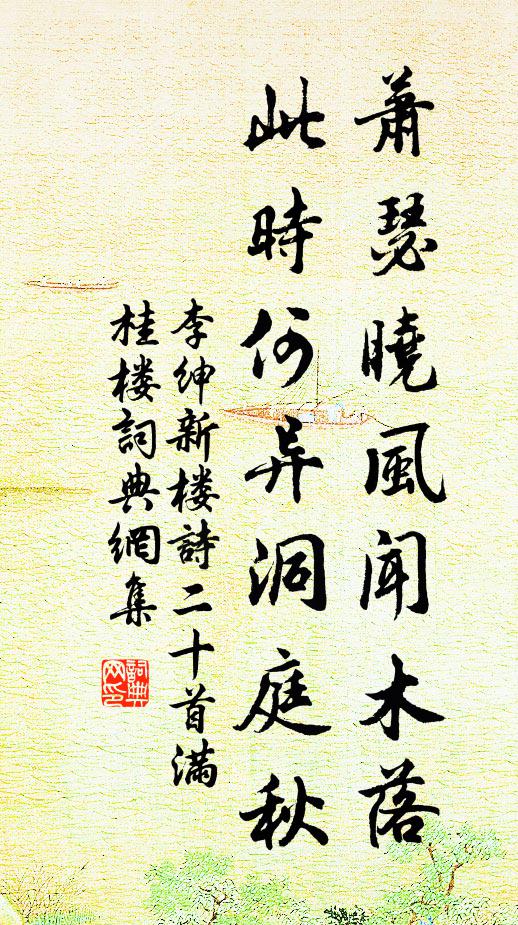 蕭瑟曉風聞木落
此時何异洞庭秋
李紳新楼詩二十首滿
桂楼詞典網集
詞典
网印